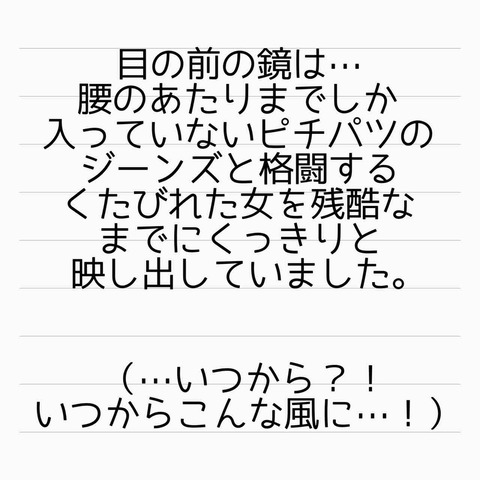 目の前の鏡は…
腰のあたりまでしか
入っていないピチパツの
ジーンズと格闘する
くたびれた女を残酷な
までにくっきりと
映し出していました。
（…いつから？！
いつからこんな風に…！）